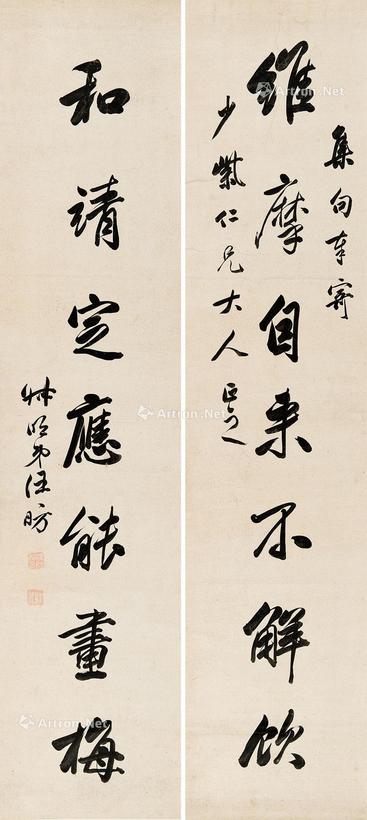 集句奉寄
維摩自來不解飲
少紫仁兄大人正之
和靖定應能畫梅
叔明弟汪昉
Artron.Net
Artron.Net
Artron.Net
Artron.Net